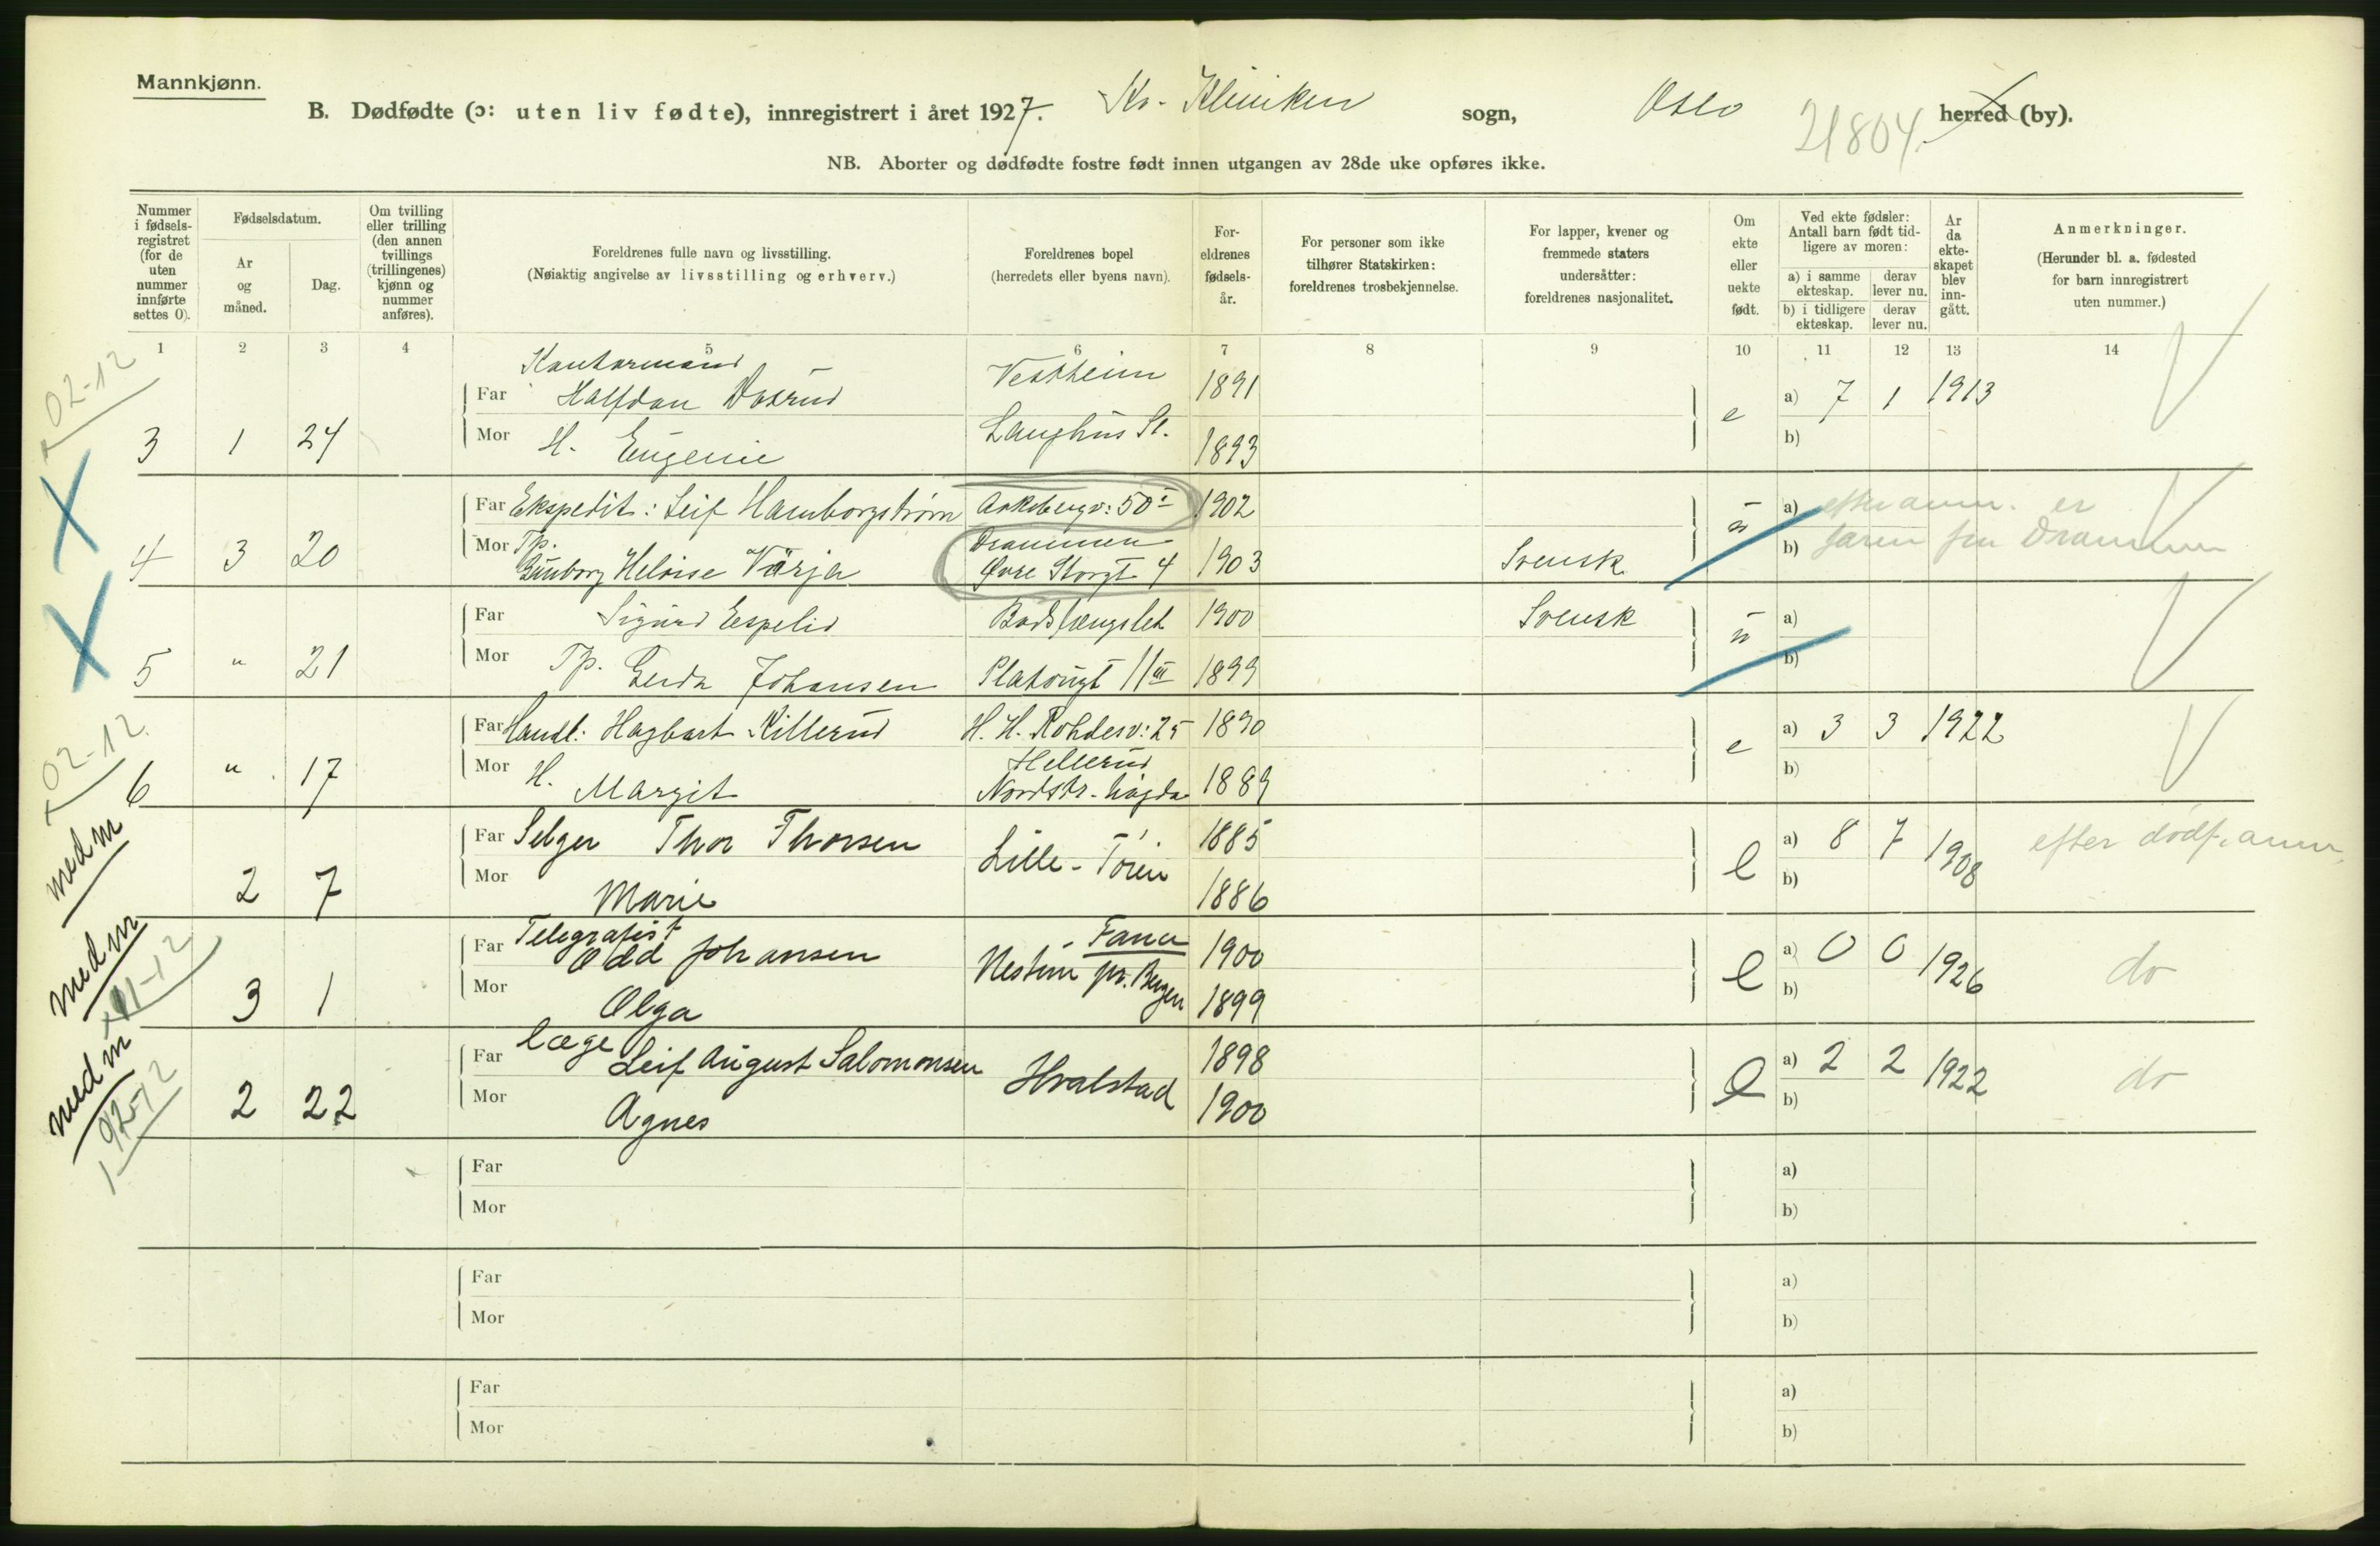 Mannkjønn.
B. Dødfødte (ɔ: uten liv fødte), innregistrert i året 1927. Kv. Kliniken sogn, Oslo herred (by).
21804.
NB. Aborter og dødfødte fostre født innen utgangen av 28de uke opføres ikke.
Nummer i fødsels-registret (for de uten nummer innførte settes 0).
Fødselsdatum.
År og måned.
Dag.
Om tvilling eller trilling (den annen tvillings (trillingenes) kjønn og nummer anføres).
Foreldrenes fulle navn og livsstilling.
(Nøiaktig angivelse av livsstilling og erhverv.)
Foreldrenes bopel
(herredets eller byens navn).
For-eldrenes fødsels-år.
For personer som ikke tilhører Statskirken: foreldrenes trosbekjennelse.
For lapper, kvener og fremmede staters undersåtter: foreldrenes nasjonalitet.
Om ekte eller uekte født.
Ved ekte fødsler: Antall barn født tid-ligere av moren:
a) i samme ekteskap.
derav lever nu.
b) i tidligere ekteskap.
derav lever nu.
År da ekte-skapet blev inn-gått.
Anmerkninger.
(Herunder bl. a. fødested for barn innregistrert uten nummer.)
1 2 3 4 5 6 7 8 9 10 11 12 13 14
02-12
Kontormand
Far Halfdan Vestheim 1891
3 1 24 e a) 7 1 1913
Mor H. Eugenie Langhus St. 1893 b)
Far Ekspedit: Leif Hamborgstrøm 50 1902 a) efter anm. er
4 3 20 u
Mor Tp. Gunborg Heloise Värja Drammen Øvre Storgt 4 1903 Svensk b) faren fra Drammen
Far Sigurd Espelid Bodsfængslet 1900 Svensk a)
5 " 21 u
Mor Tp. Gerda Johansen Platougt 11 III 1899 b)
02-12
Far Handl: Hagbart Killerud H. H. Rohdesv: 25 1890 a) 3 3 1922
6 " 17 e
Mor H. Margit Hellerud Nordstr. høgda 1889 b)
med m
Far Selger Thor Thorsen Lille-Tøien 1885 a) 8 7 1908 efter dødf. anm.
2 7 e
Mor Marie 1886 b)
med m
Far Telegrafist Odd Johansen Fana 1900 a) 0 0 1926 do
3 1 e
Mor Olga Nestun pr. Bergen 1899 b)
med m
Far læge Leif August Salomonsen Hvalstad 1898 a) 2 2 1922 do
2 22 e
Mor Agnes 1900 b)
Far a)
Mor b)
Far a)
Mor b)
Far a)
Mor b)